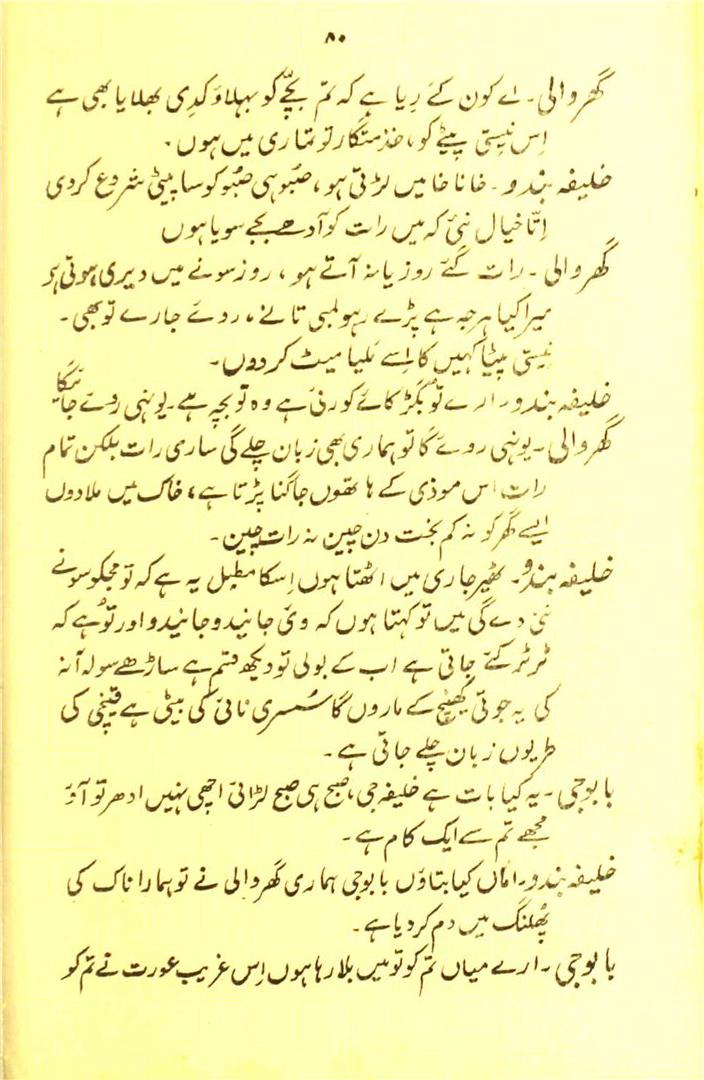 ۸۰
گھر والی۔ اے کون کئے رِیا ہے کہ تم بچّے کو بہلاؤ کدِی بھلایا بھی ہے
اِس نیستی پیٹے کو، خذمتگار تو تماری میں ہوں۔
خلیفہ بندو۔ خانا خا میں لڑتی ہو، صبُو ہی صبُو کو ساپیٹی شروع کردی
اِتّا خیال نئی کہ میں رات کو آدھے بجے سویا ہوں
گھر والی۔ رات گئے روز یانہ آتے ہو، روز سونے میں دیری ہوتی ہو
میرا کیا ہرجہ ہے پڑے رہو لمبی تانے، ردئے جارے تو بھی۔
نیستی پیٹا کہیں کا اِسے ملیا میٹ کردوں۔
خلیفہ بندو۔ ارے تو بگڑ کائے کو رئی ہے وہ تو بچہ ہے۔ یونہی روئے جائیگا
گھر والی۔ یونہی روے گا تو ہماری بھی زبان چلے گی ساری رات بلکن تمام
رات اس موذی کے ہاتھوں جاگنا پڑتا ہے، خاک میں ملادوں
ایسے گھر کو نہ کم بخت دن چین نہ رات چین۔
خلیفہ بندو۔ ٹھیر جاری میں اٹھتا ہوں اِسکا مطبل یہ ہے کہ تو مجکو سونے
نئی دے گی میں تو کہتا ہوں کہ وئی جانیدو جانیدو اور تو ہے کہ
ٹرٹر کئے جاتی ہے اب کے بولی تو دیکھ قسم ہے ساڑھے سولہ آنہ
کی یہ جوتی کھینچ کے ماروں گا سُسری نائی کی بیٹی ہے قینچی کی
طریوں زبان چلے جاتی ہے۔
بابوجی۔ یہ کیا بات ہے خلیفہ جی، صبح ہی صبح لڑائی اچھی نہیں ادھر تو آؤ
مجھے تم سے ایک کام ہے۔
خلیفہ بندو۔ اماں کیا بتاؤں بابوجی ہماری گھر والی نے تو ہمارا ناک کی
پھُلنگ میں دم کردیا ہے۔
بابوجی۔ ارے میاں تم کو تو میں بلا رہا ہوں اِس غریب عورت نے تم کو